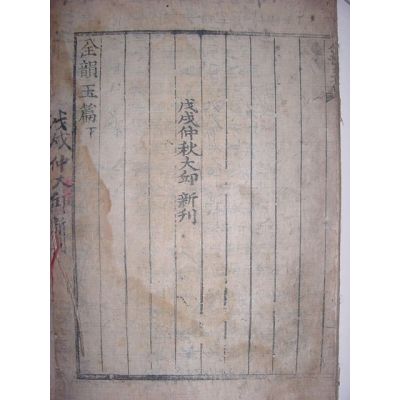 戊戌仲秋大邱 新刊
全韻玉篇 下
戊戌仲大邱新刊